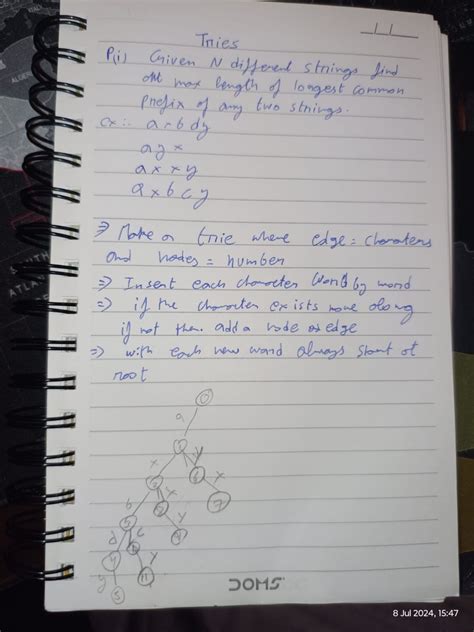 Tries
P(i) Given N different strings find
out max length of longest common
prefix of any two strings.
ex :- a x b d y
a y x
a x x y
a x b c y
⇒ Make a trie where edge = characters
and nodes = number
⇒ Insert each character word by word
⇒ if the character exists move along
if not then add a node or edge
⇒ with each new word always start at
root
0
a
1
x y
2 6 x
b x 7
3 y
d c
4 y
y
5
DOMS
8 Jul 2024, 15:47